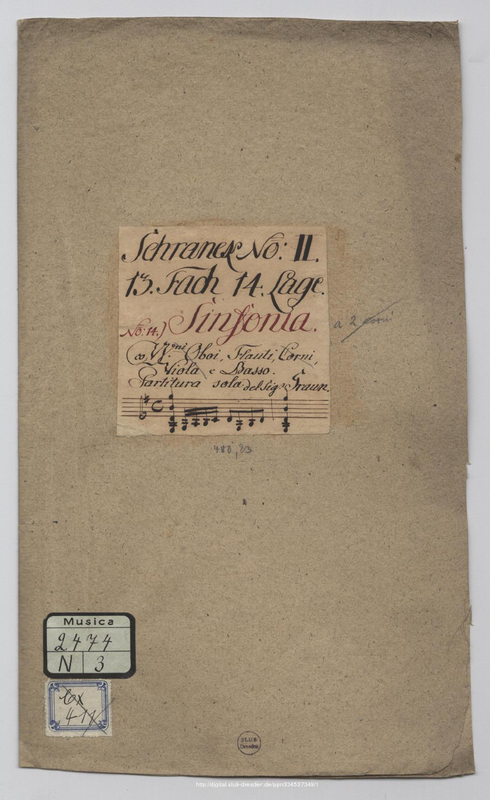 Schranck No: II.
13. Fach 14. Lage.
No: 14.) Sinfonia.
a 2 Corni
co VV.ni Oboi, Flauti, Corni,
Viola e Basso.
Partitura sola del Sigr Graun.
Musica
2474
N 3
417
SLUB
Dresden
http://digital.slub-dresden.de/ppn334537349/1